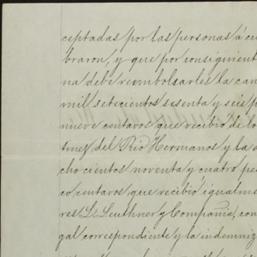 ceptadas por las personas á cu
braron, y que por consiguient
na debe reembolsarles la can
mil setecientos sesenta y seis p
nueve centavos que recibió de lo
tinez del Rio Hermanos y la s
cho cientos noventa y cuatro pe
co centavos que recibió igualm
res S. Leuthner y Compañia, con
gal correspondiente y la indemniz